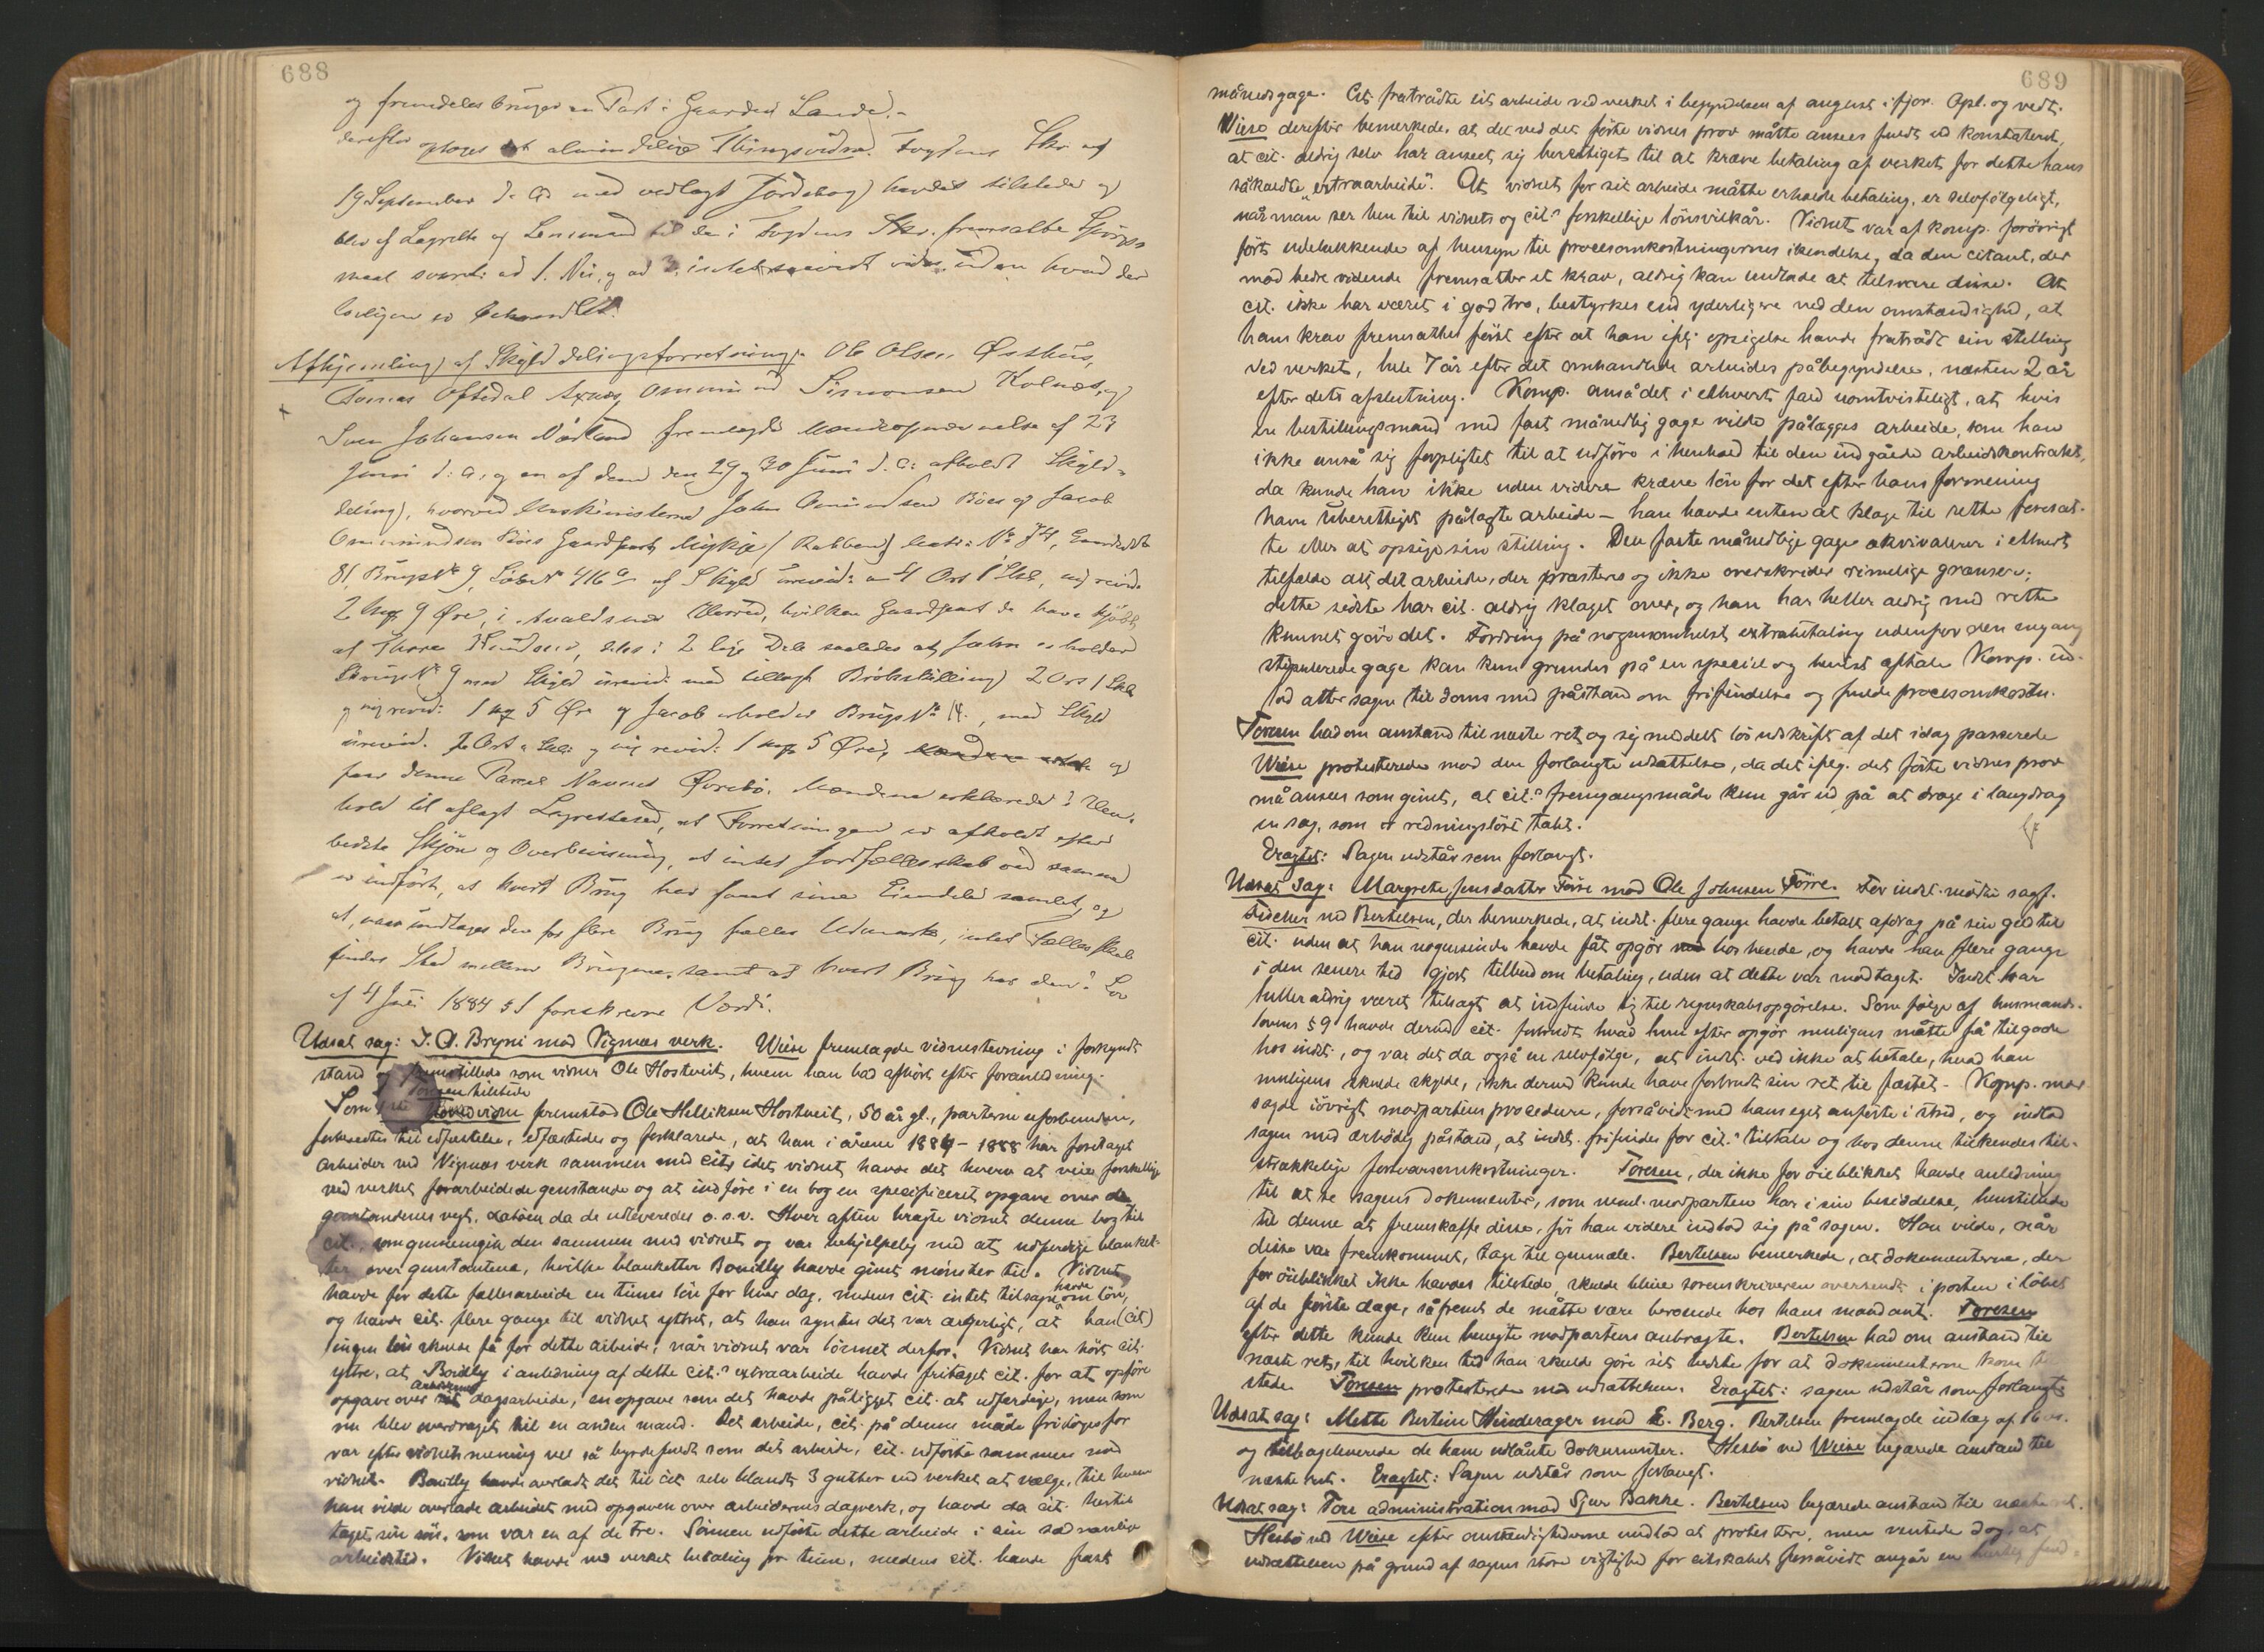 688
og fremdeles bruger en Part i Gaarden Sande.-
derefter optoges et almindelige Thingsvidne. Fogdens Skr af
19 September d. A. med vedlagt Jordebog havdes tilstede og
blev af Lagrette og Lensmand til de i Fogdens Skr. fremsatte Spörgs
maal svaret: ad 1. Nei, og ad 3. intet vides uden hvad der
Afhjemling af Skylddelingsforretning. Ole Olsen Østhus,
Tomas Oftedal Axnes, Ommund Simonsen Kolnæs, og
Sven Johansen Nörland fremlagde Mandsopnævnelse af 23
Juni d: A, og en af dem den 29 og 30 Juni d. A: afholdt Skyld-
deling, hvorved Maskinisterne John Omundsen Böes og Jacob
Ommundsen Böes Gaardpart Mykje (Rabben) Matr: No 74, Gaards
81, BrugsNo 9, LöbeNo 416a af Skyld urevid: 4 Ort 1 Skl, ny revid.
2 mk 9 Øre, i Avaldsnes Herred, hvilken Gaardpart de have kjöbt
af Thore Knudsen, deles i 2 lige Dele saaledes at John beholder
BrugsNo 9 med Skyld urevid: med tillagt Brökskilling 2 Ort 1 Skl
og ny revid: 1 mk 5 Øre og Jacob erholder Brugs No 14., med Skyld
urevid. 2 Ort 1 Skl: og ny revid: 1 mk 5 Øre, og
faar denne Parcel Navnet Øvrebö. Mændene erklærede i Hen-
hold til aflagt Lagrettesed, at Forretningen er afholdt efter
bedste Skjön og Overbevisning, at intet Jordfællesskab ved samme
er indfört, at hvert Brug har faaet sine Eiendele samlet, og
at, naar undtages den for flere Brug fælles Udmark, intet Fællesskab
finder Sted mellem Brugene, samt at hvert Brug har den i Lov
af 4 Juni 1884 § 1 foreskrevne Værdi.
Udsat sag: J. A. Bryni mod Vigsnes verk. Wiese fremlagde vidnestevning i forkyndt
stand og fremstillede som vidner Ole Hostveit, hvem han bad afhört efter foranledning.
Toresen tilstede
Som 1ste Hovedvidne fremstod Ole Helliksen Hostveit, 50 år gl., parterne uforbunden,
forberedtes til edfæstelse, edfæstedes og forklarede, at han i årene 1884 - 1888 har foretaget
arbeider ved Vigsnes verk sammen med cit, idet vidnet havde det hverv at veie forskellige
ved verket forarbeidede genstande og at indføre i en bog en specificeret opgave over de
genstandenes vegt, datoen da de udleveredes o.s.v. Hver aften bragte vidnet denne bog til
cit., som gennemgik den sammen med vidnet og var behjelpelig med at udferdige blanket-
ter over genstandene, hvilke blanketter Bouilly havde givet mønster til. Vidnet
havde for dette fællesarbeide en times lön for hver dag, medens cit. intet tilsagn havde om lön,
og havde cit. flere gange til vidnet yttret, at han syntes det var ærgerligt, at han (cit)
ingen lön skulde få for dette arbeide, når vidnet var lönnet derfor. Vidnet har hört cit.
yttre, at Bouilly i anledning af dette cit.s extraarbeide havde fritaget cit. for at opføre
opgave over arbeidernes dagsarbeide, en opgave som det havde påligget cit. at udferdige, men som
nu blev overdraget til en anden mand. Det arbeide, cit. på denne måde fritoges for
var efter vidnets mening vel så byrdefuldt som det arbeide, cit. udførte sammen med
vidnet. Bouilly havde overladt det til cit selv blandt 3 gutter ved verket at vælge, til hvem
han vilde overlade arbeidet med opgaven over arbeidernes dagverk, og havde da cit. hertil
taget sin sön, som var en af de tre. Sönnen udførte dette arbeide i sin sædvanlige
arbeidstid. Vidnet havde ved verket betaling pr time, medens cit. havde fast
689
månedsgage. Cit. fratrådte sit arbeide ved verket i begyndelsen af august i fjor. Opl. og vedt.
Wiese derefter bemerkede, at det ved det förste vidnes prov måtte ansees fuldt ud konstateret,
at cit. aldrig selv har anseet sig berettiget til at kræve betaling af verket for dette hans
såkaldte „extraarbeide". At vidnet for sit arbeide måtte erholde betaling, er selvfölgeligt,
når man ser hen til vidnets og cit.s forskellige lönsvilkår. Vidnet var af komp. forövrigt
fört udelukkende af hensyn til procesomkostningernes ikendelse, da den citant, der
mod bedre vidende fremsætter et krav, aldrig kan undlade at tilsvare disse. At
cit. ikke har været i god tro, bestyrkes end yderligere ved den omstændighed, at
hans krav fremsattes först efter at han iflg. opsigelse havde fratrådt sin stilling
ved verket, hele 7 år efter det omhandlede arbeides påbegyndelse, næsten 2 år
efter dets afslutning. Komp. anså det i ethvert fald uomtvisteligt, at hvis
en bestillingsmand med fast månedlig gage vilde pålægges arbeide, som han
ikke anså sig forpligtet til at udføre i henhold til den indgåede arbeidskontrakt,
da kunde han ikke uden videre kræve lön for det efter hans formening
ham uberettiget pålagte arbeide – han havde enten at klage til rette foresat-
te eller at opsige sin stilling. Den faste månedlige gage ækvivalerer i ethvert
tilfælde alt det arbeide, der præsteres og ikke overskrider rimelige grænser;
dette sidste har cit. aldrig klaget over, og han har heller aldrig med rette
kunnet göre det. Fordring på nogensomhelst extrabetaling udenfor den engang
stipulerede gage kan kun grundes på en speciel og bevist aftale. Komp. ind-
lod atter sagen til doms med påstand om frifindelse og fulde procesomkostn.
Toresen bad om anstand til næste ret og sig meddelt lös udskrift af det idag passerede
Wiese protesterede mod den forlangte udsættelse, da det iflg. det förste vidnes prov
må ansees som givet, at cit.s fremgangsmåde kun går ud på at drage i langdrag
en sag, som er redningslöst tabt.
Eragtet: Sagen udstår som forlangt.
Udsat sag: Margrete Jensdatter Förre mod Ole Johnsen Förre. For indst. mödte sagf.
Fidcher ved Bertelsen, der bemerkede, at indst. flere gange havde betalt afdrag på sin gjeld til
cit. uden at han nogensinde havde fåt opgör hos hende, og havde han flere gange
i den senere tid gjort tilbud om betaling, uden at dette var modtaget. Indst. var
heller aldrig været tilsagt at indfinde sig til regnskabsopgörelse. Som følge af husmands-
lovens § 9 havde derved cit. forbrudt hvad hun efter opgör muligens måtte få tilgode
hos indst., og var det da også en selvfölge, at indst. ved ikke at betale, hvad han
muligens skulde skylde, ikke derved kunde have forbrudt sin ret til fæstet. – Komp. mod
sagde iövrigt modpartens procedure, forsåvidt med hans eget anførte i strid, og indlod
sagen med ærbödig påstand, at indst. frifindes for cit.s tiltale og hos denne tilkendes til-
strækkelige forsvarsomkostninger. Toresen, der ikke for öieblikket havde anledning
til at se sagens dokumenter, som vel modparten har i sin besiddelse, henstillede
til denne at fremskaffe disse, för han videre indlod sig på sagen. Han vilde, når
disse var fremkommet, tage til genmæle. Bertelsen bemerkede, at dokumenterne, der
for öieblikket ikke havdes tilstede, skulde blive sorenskriveren oversendt i posten i löbet
af de første dage, såfremt de måtte være beroende hos hans mandant. Toresen
efter dette kunde kun benegte modpartens anbragte. Bertelsen bad om anstand til
næste ret, til hvilken tid han skulde göre sit bedste for at dokumenterne kom til
stede. Toresen protesterede mod udsættelsen. Eragtet: sagen udstår som forlangt
Udsat sag: Mette Bertine Hinderager mod E. Berg. Bertelsen fremlagde indlæg af 16 ds.
og tilbageleverede de ham udlånte dokumenter. Hesbö ved Wiese begærede anstand til
næste ret. Eragtet: Sagen udstår som forlangt.
Udsat sag: Tore administration mod Sjur Bakke. Bertelsen begærede anstand til næste ret.
Hesbö ved Wiese efter omstændighederne undlod at protestere, men ventede dog, at
udsættelsen på grund af sagens store vigtighed for citskabet forsåvidt angår en